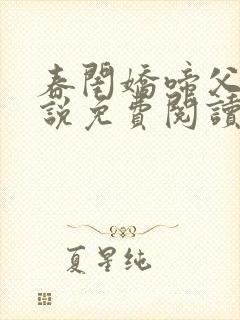 春閨嬌啼父
説免費閱讀
夏星纯